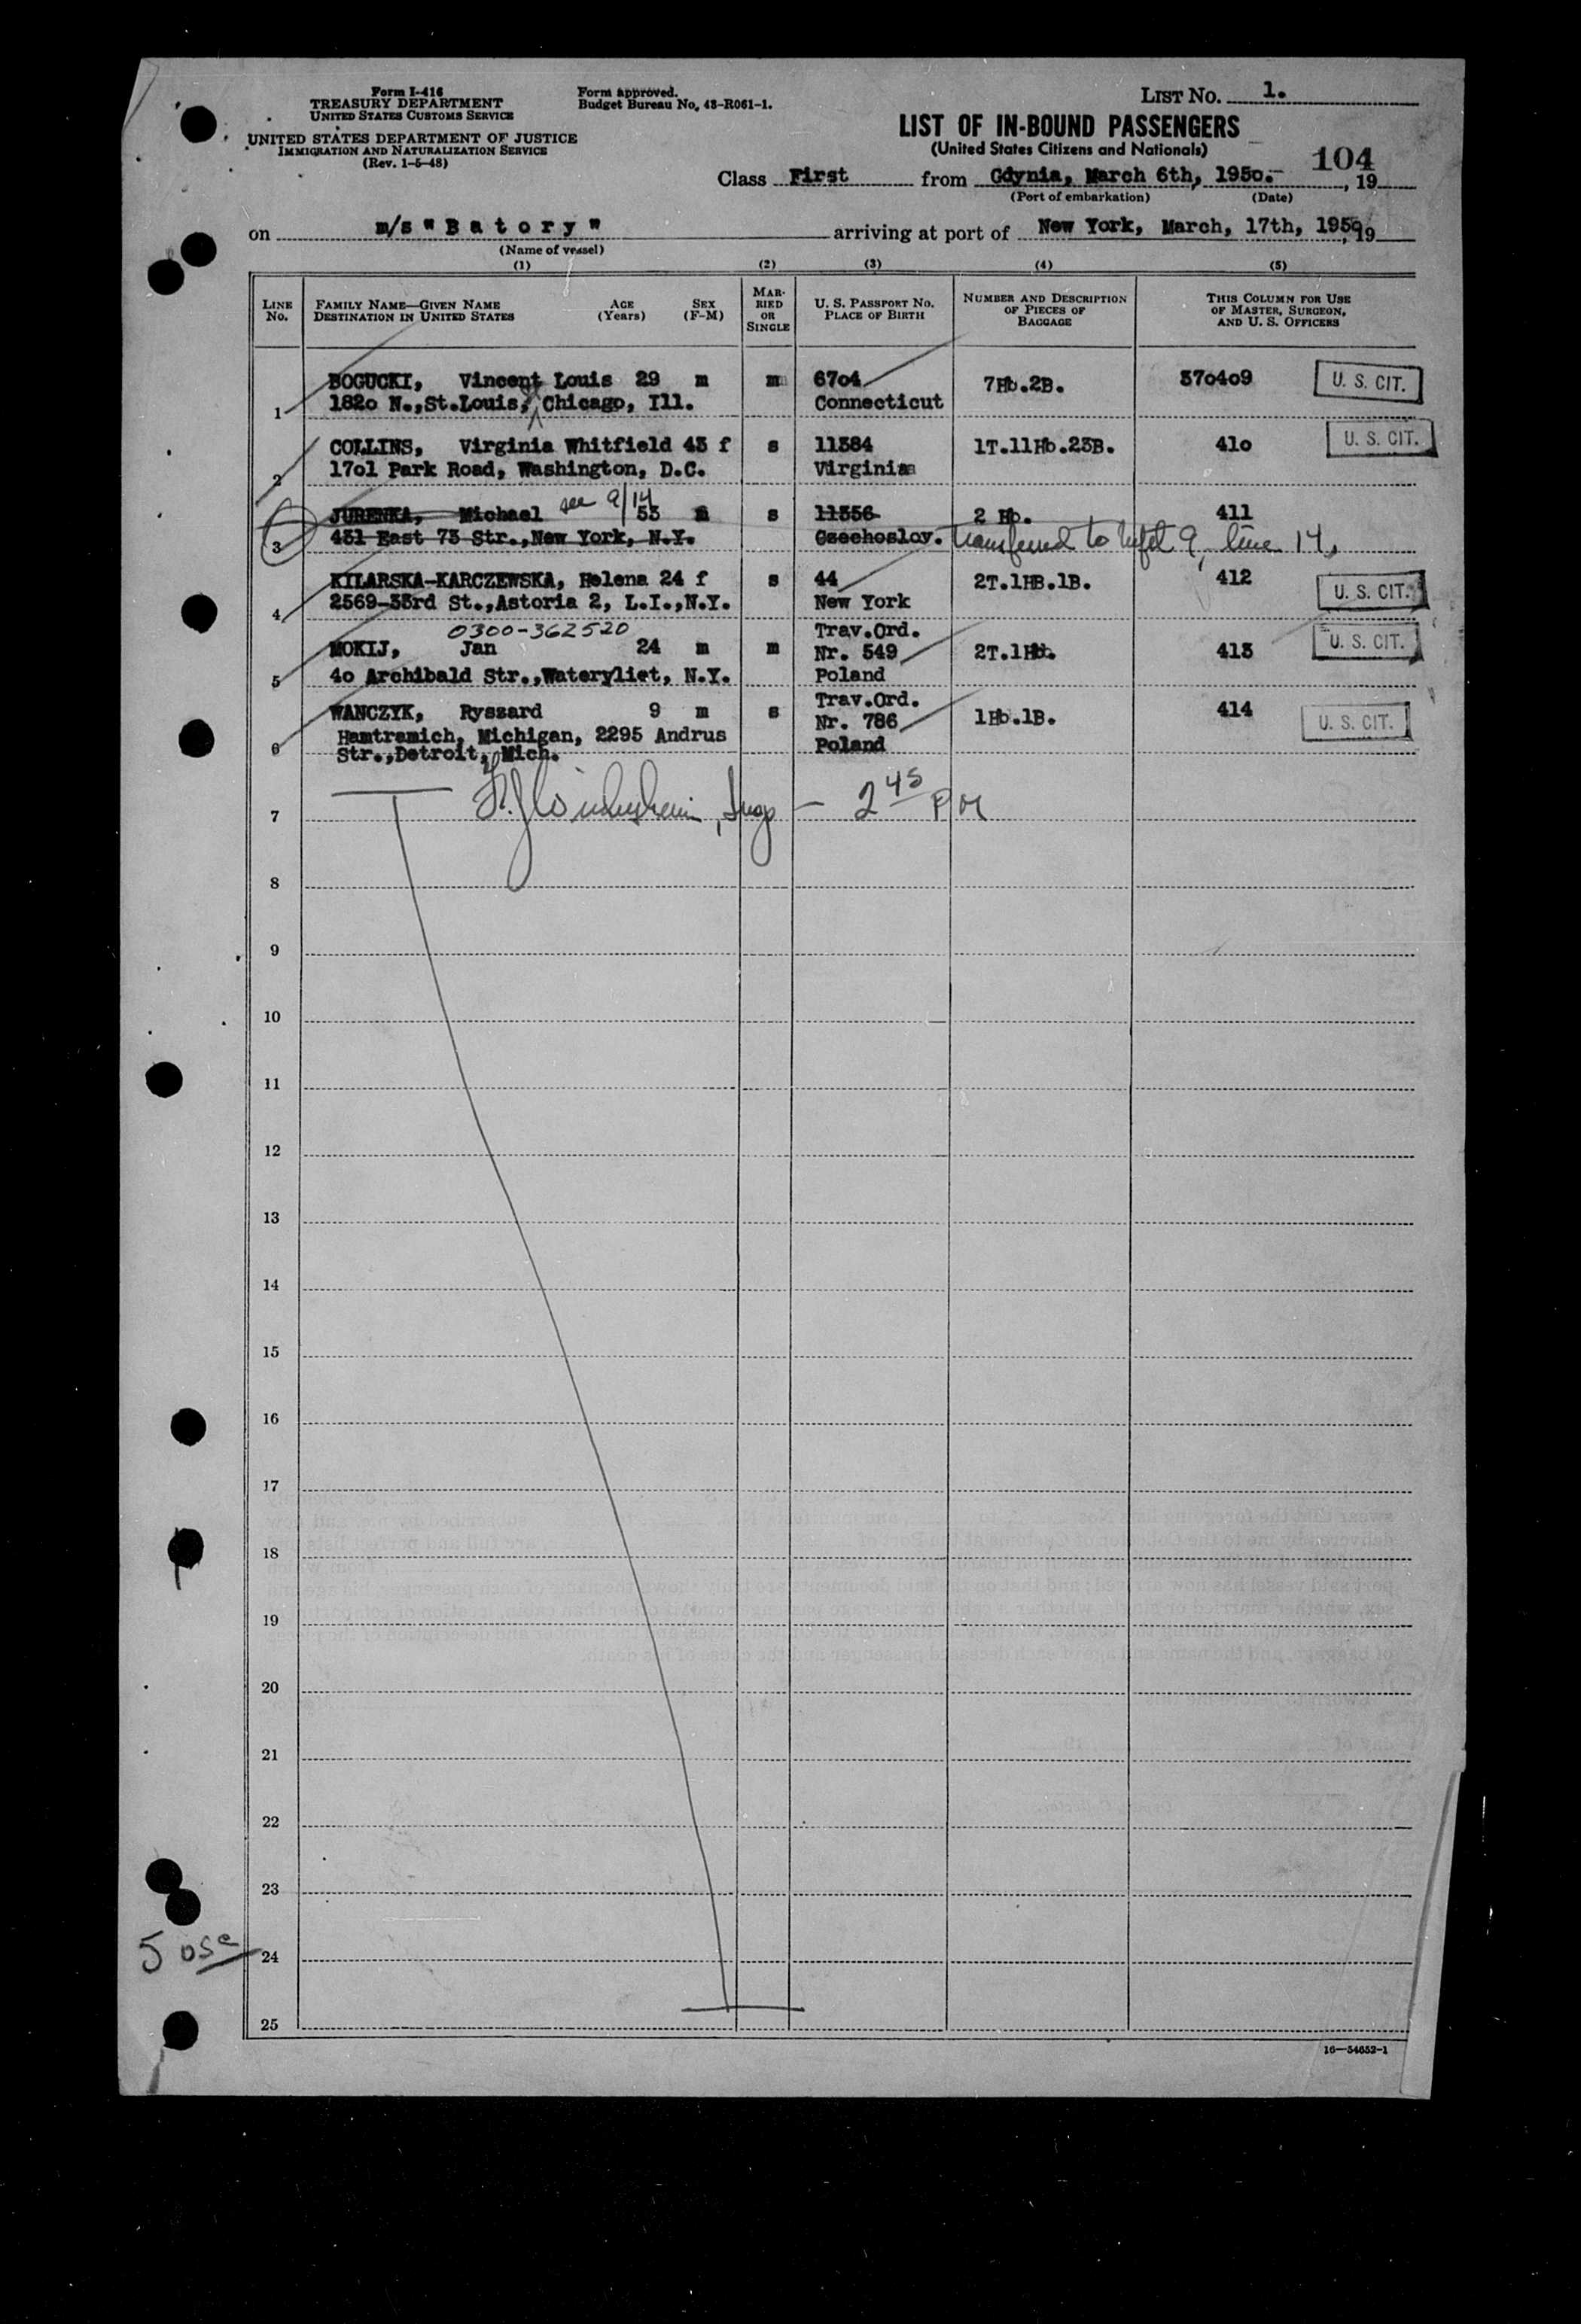 Form I-416
TREASURY DEPARTMENT
UNITED STATES CUSTOMS SERVICE
UNITED STATES DEPARTMENT OF JUSTICE
IMMIGRATION AND NATURALIZATION SERVICE
(Rev. 1-5-48)
Form approved.
Budget Bureau No. 43-R061-1.
LIST NO. 1.
LIST OF IN-BOUND PASSENGERS
(United States Citizens and Nationals)
104
Class First from Gdynia, March 6th, 1950.- , 19
(Port of embarkation) (Date)
on m/s "B a t o r y" arriving at port of New York, March, 17th, 1950, 19
(Name of vessel)
(1) (2) (3) (4) (5)
LINE No. FAMILY NAME—GIVEN NAME DESTINATION IN UNITED STATES AGE (Years) SEX (F-M) MARRIED OR SINGLE U. S. PASSPORT NO. PLACE OF BIRTH NUMBER AND DESCRIPTION OF PIECES OF BAGGAGE THIS COLUMN FOR USE OF MASTER, SURGEON, AND U. S. OFFICERS
BOGUCKI, Vincent Louis 29 m m 6704 7Hb.2B. 370409 U. S. CIT.
1 1820 N.,St.Louis, Chicago, Ill. Connecticut
COLLINS, Virginia Whitfield 43 f s 11384 1T.11Hb.23B. 410 U. S. CIT.
2 1701 Park Road, Washington, D.C. Virginia
see 9/14
JURENKA, Michael 53 m s 11356 2 Hb. 411
3 431 East 73 Str.,New York, N.Y. Czechoslov. Transferred to 9, line 14.
KILARSKA-KARCZEWSKA, Helena 24 f s 44 2T.1HB.1B. 412 U. S. CIT.
4 2569-33rd St.,Astoria 2, L.I.,N.Y. New York
0300-362520
MOKIJ, Jan 24 m m Trav.Ord. Nr. 549 2T.1Hb. 413 U. S. CIT.
5 40 Archibald Str.,Wateryliet, N.Y. Poland
WANCZYK, Ryszard 9 m s Trav.Ord. Nr. 786 1Hb.1B. 414 U. S. CIT.
6 Hamtramich, Michigan, 2295 Andrus Str.,Detroit, Mich. Poland
7 Insp — 2 45 PM
8
9
10
11
12
13
14
15
16
17
18
19
20
21
22
23
5 24
25
16—54652-1